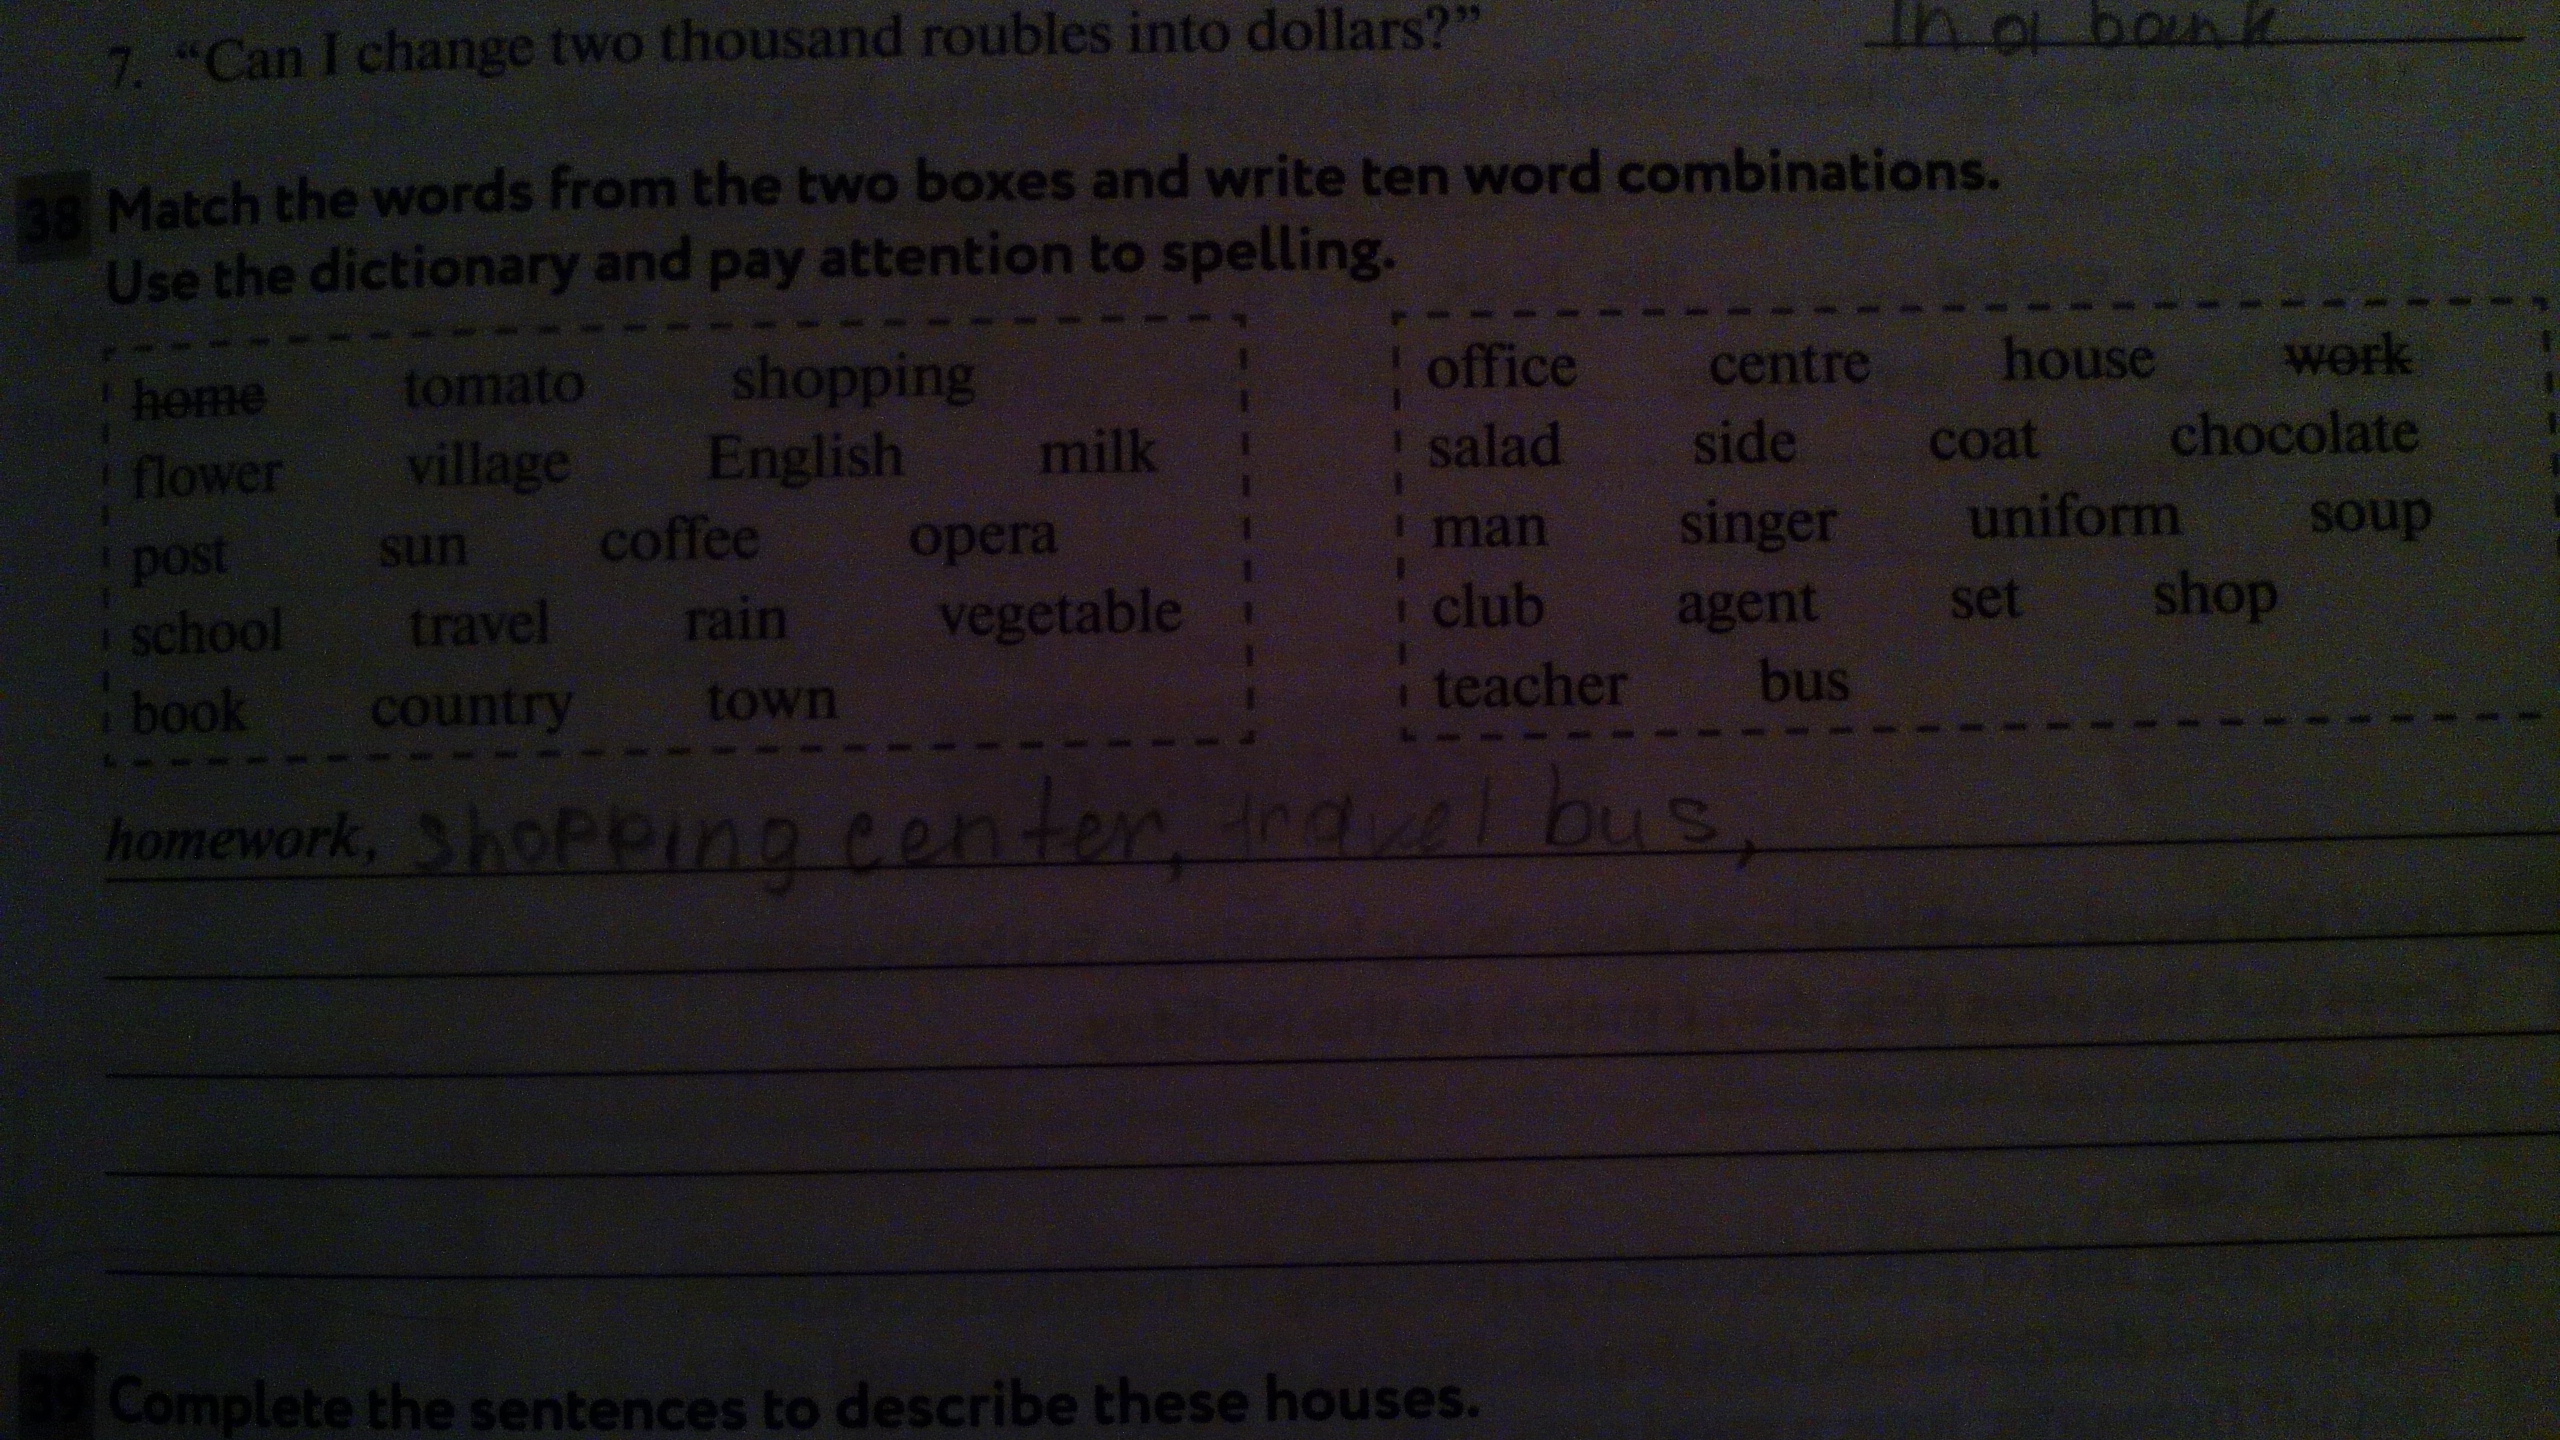 7. “Can I change two thousand roubles into dollars?” In a bank
38 Match the words from the two boxes and write ten word combinations.
Use the dictionary and pay attention to spelling.
home tomato shopping
flower village English milk
post sun coffee opera
school travel rain vegetable
book country town
office centre house work
salad side coat chocolate
man singer uniform soup
club agent set shop
teacher bus
homework, shopping center, travel bus,
39 Complete the sentences to describe these houses.